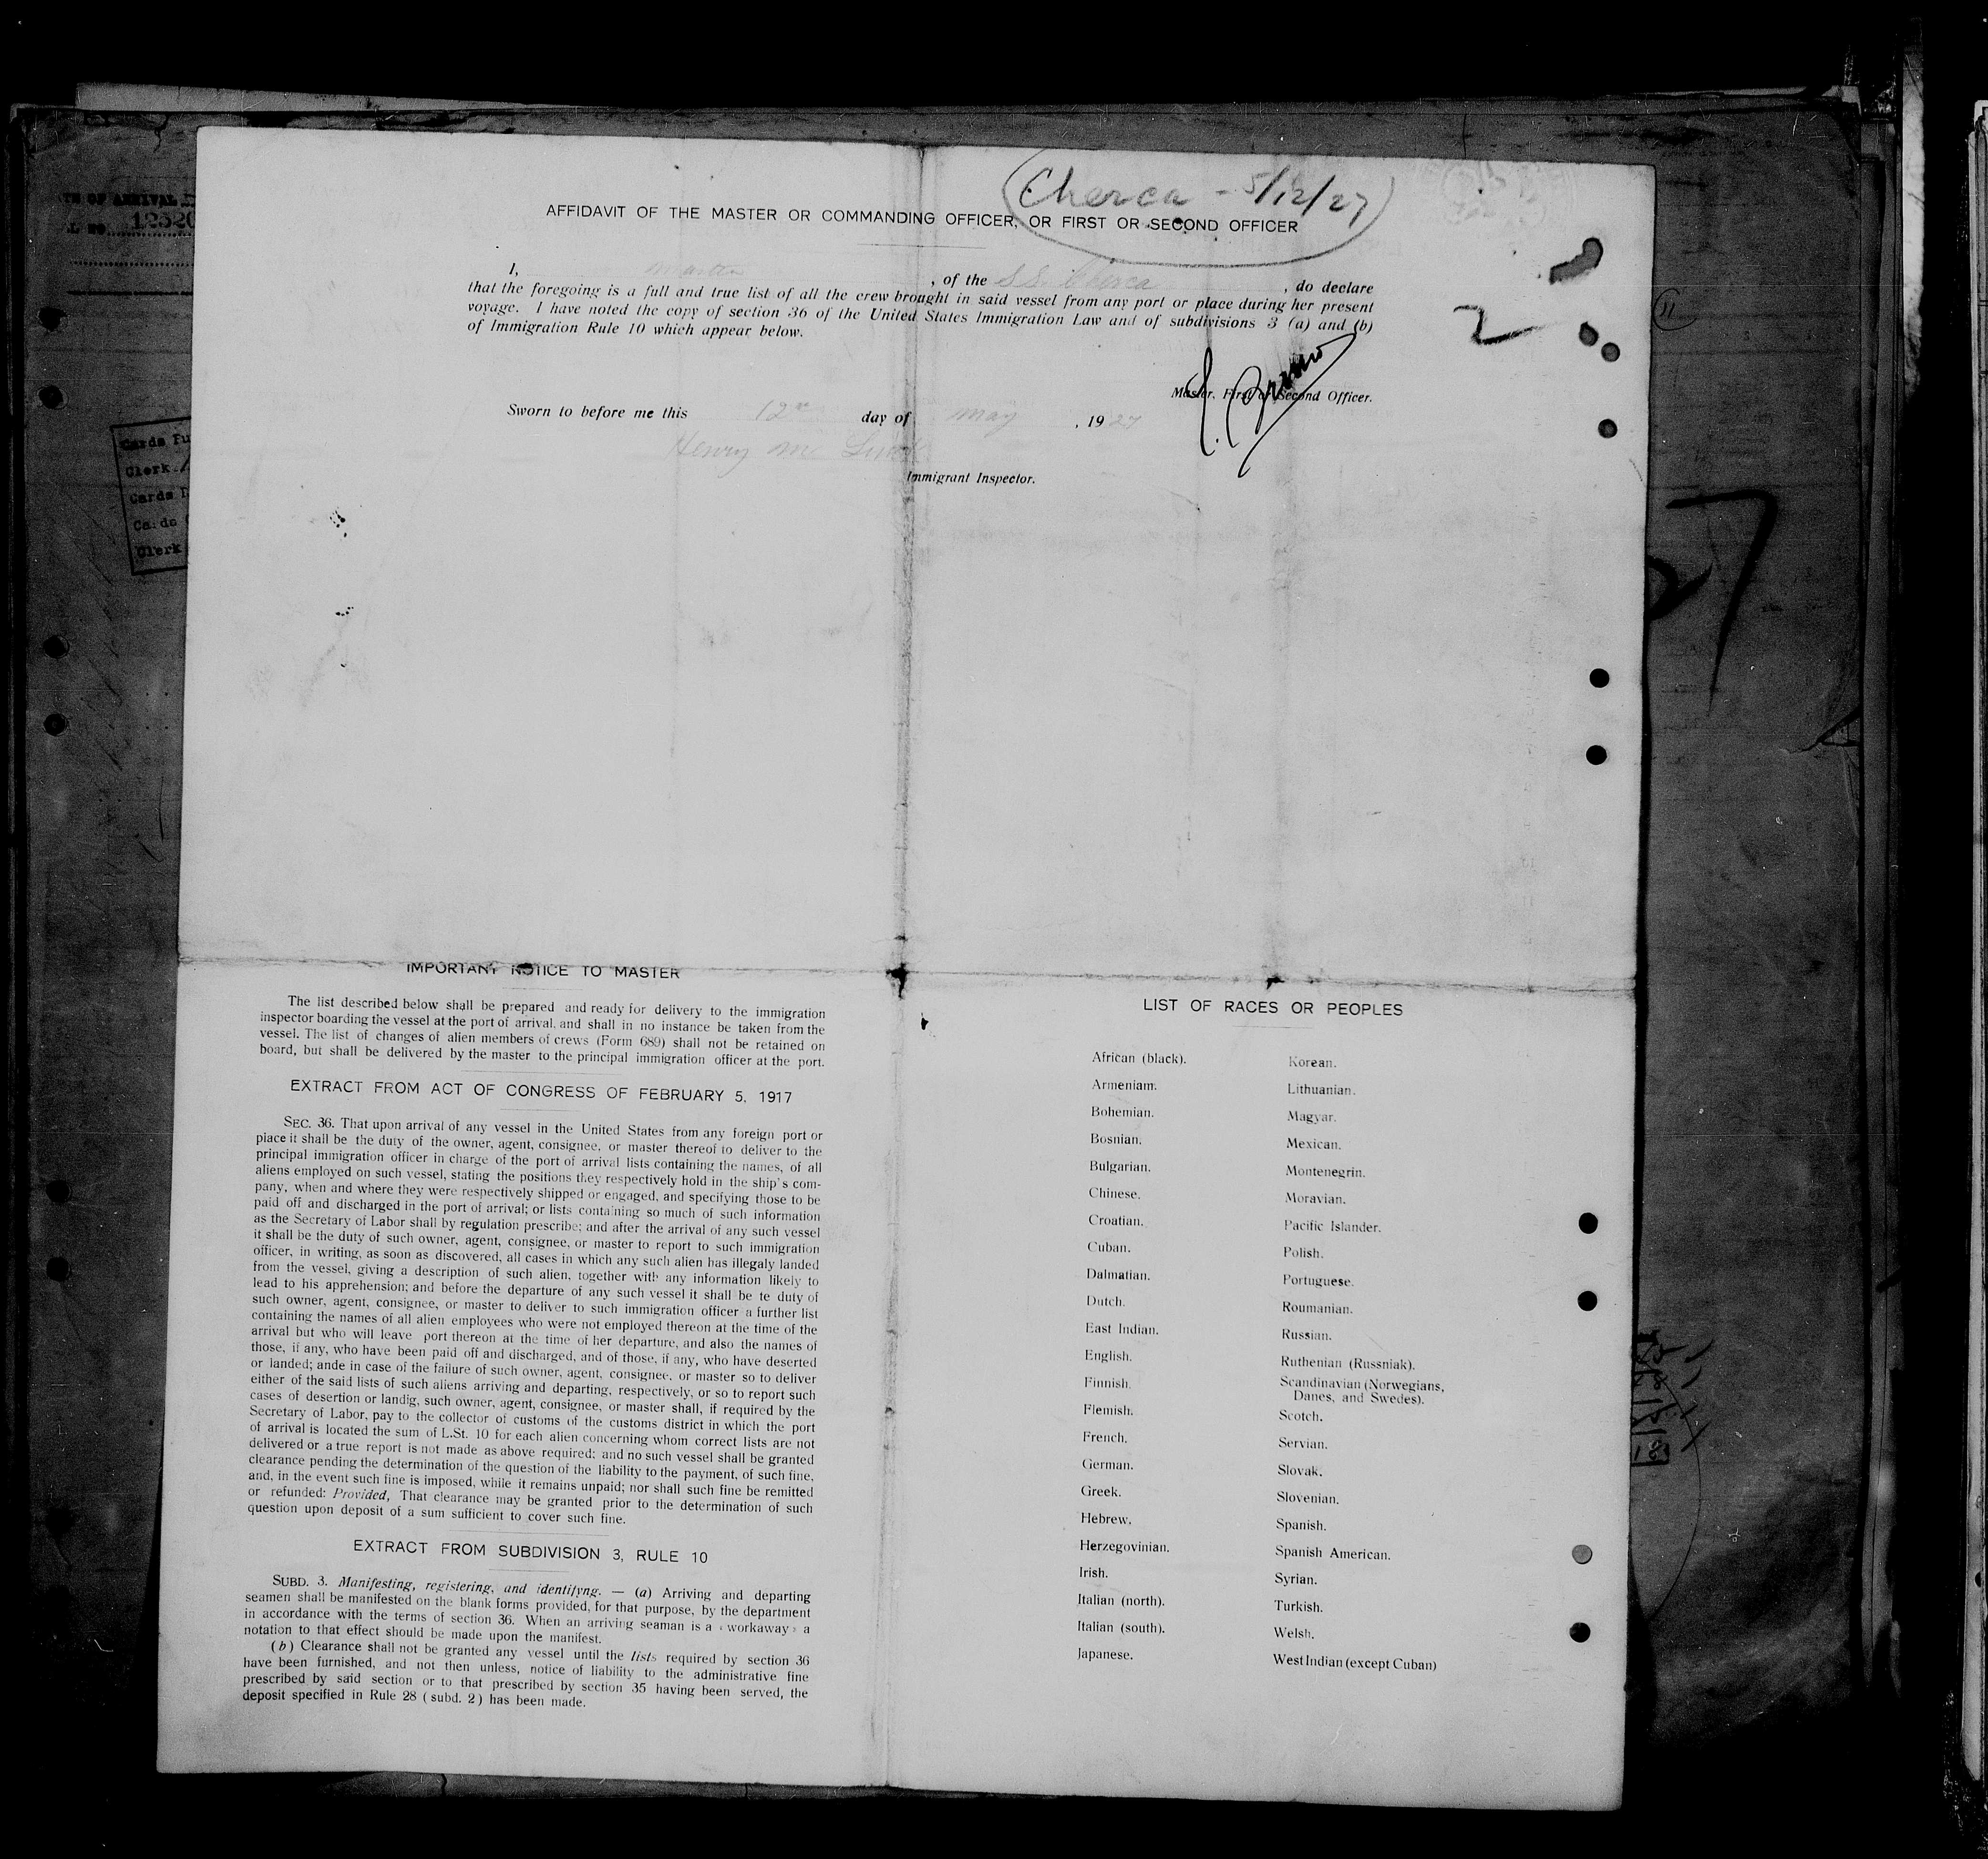 Cherca - 5/12/27
AFFIDAVIT OF THE MASTER OR COMMANDING OFFICER, OR FIRST OR SECOND OFFICER
I, master , of the S.S. Cherca , do declare
that the foregoing is a full and true list of all the crew brought in said vessel from any port or place during her present
voyage. I have noted the copy of section 36 of the United States Immigration Law and of subdivisions 3 (a) and (b)
of Immigration Rule 10 which appear below.
2
Master, First or Second Officer.
Sworn to before me this 12 day of May , 1927
Henry M
Immigrant Inspector.
OF ARRIVAL
12520
Cards Fu
Clerk
Cards
Cards
Clerk
11
IMPORTANT NOTICE TO MASTER
The list described below shall be prepared and ready for delivery to the immigration
inspector boarding the vessel at the port of arrival, and shall in no instance be taken from the
vessel. The list of changes of alien members of crews (Form 689) shall not be retained on
board, but shall be delivered by the master to the principal immigration officer at the port.
EXTRACT FROM ACT OF CONGRESS OF FEBRUARY 5, 1917
SEC. 36. That upon arrival of any vessel in the United States from any foreign port or
place it shall be the duty of the owner, agent, consignee, or master thereof to deliver to the
principal immigration officer in charge of the port of arrival lists containing the names, of all
aliens employed on such vessel, stating the positions they respectively hold in the ship's com-
pany, when and where they were respectively shipped or engaged, and specifying those to be
paid off and discharged in the port of arrival; or lists containing so much of such information
as the Secretary of Labor shall by regulation prescribe; and after the arrival of any such vessel
it shall be the duty of such owner, agent, consignee, or master to report to such immigration
officer, in writing, as soon as discovered, all cases in which any such alien has illegaly landed
from the vessel, giving a description of such alien, together with any information likely to
lead to his apprehension; and before the departure of any such vessel it shall be te duty of
such owner, agent, consignee, or master to deliver to such immigration officer a further list
containing the names of all alien employees who were not employed thereon at the time of the
arrival but who will leave port thereon at the time of her departure, and also the names of
those, if any, who have been paid off and discharged, and of those, if any, who have deserted
or landed; ande in case of the failure of such owner, agent, consignee, or master so to deliver
either of the said lists of such aliens arriving and departing, respectively, or so to report such
cases of desertion or landig, such owner, agent, consignee, or master shall, if required by the
Secretary of Labor, pay to the collector of customs of the customs district in which the port
of arrival is located the sum of L.St. 10 for each alien concerning whom correct lists are not
delivered or a true report is not made as above required; and no such vessel shall be granted
clearance pending the determination of the question of the liability to the payment, of such fine,
and, in the event such fine is imposed, while it remains unpaid; nor shall such fine be remitted
or refunded: Provided, That clearance may be granted prior to the determination of such
question upon deposit of a sum sufficient to cover such fine.
EXTRACT FROM SUBDIVISION 3, RULE 10
SUBD. 3. Manifesting, registering, and identifyng. — (a) Arriving and departing
seamen shall be manifested on the blank forms provided, for that purpose, by the department
in accordance with the terms of section 36. When an arriving seaman is a «workaway» a
notation to that effect should be made upon the manifest.
(b) Clearance shall not be granted any vessel until the lists required by section 36
have been furnished, and not then unless, notice of liability to the administrative fine
prescribed by said section or to that prescribed by section 35 having been served, the
deposit specified in Rule 28 (subd. 2) has been made.
LIST OF RACES OR PEOPLES
African (black).
Armeniam.
Bohemian.
Bosnian.
Bulgarian.
Chinese.
Croatian.
Cuban.
Dalmatian.
Dutch.
East Indian.
English.
Finnish.
Flemish.
French.
German.
Greek.
Hebrew.
Herzegovinian.
Irish.
Italian (north).
Italian (south).
Japanese.
Korean.
Lithuanian.
Magyar.
Mexican.
Montenegrin.
Moravian.
Pacific Islander.
Polish.
Portuguese.
Roumanian.
Russian.
Ruthenian (Russniak).
Scandinavian (Norwegians,
Danes, and Swedes).
Scotch.
Servian.
Slovak.
Slovenian.
Spanish.
Spanish American.
Syrian.
Turkish.
Welsh.
West Indian (except Cuban)